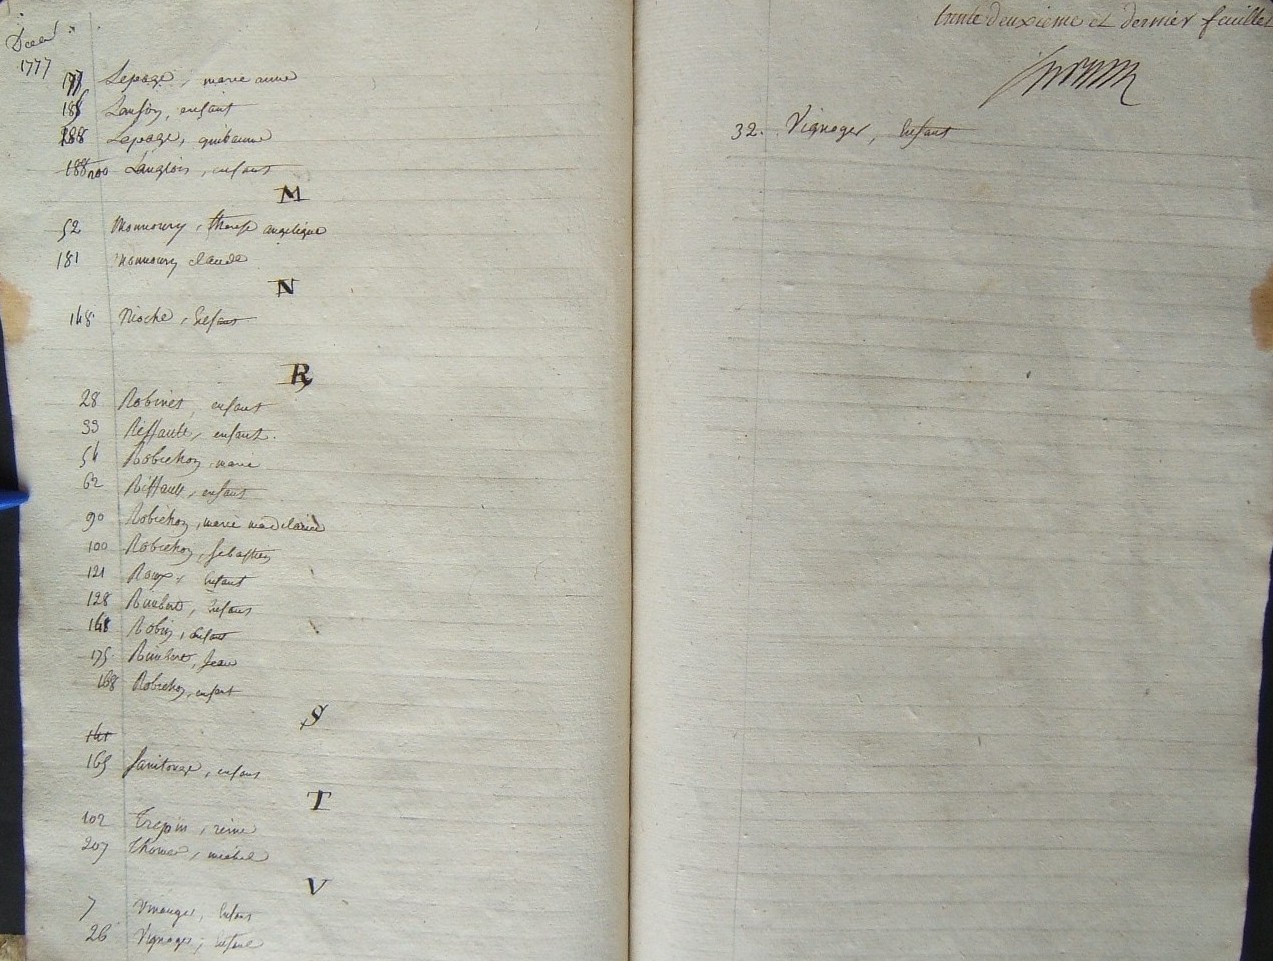 1777
177 Lepage, marie anne
185 Lanson, enfant
188 Lepage, guillaume
188 200 Langlois, enfant
M
52 Monmoury, therese angelique
181 Monmoury claude
N
148 Nioche, Enfant
R
28 Robinet, enfant
33 Riffault, enfant.
54 Robichon, marie
62 Riffault, enfant
90 Robichon, marie madelaine
100 Robichon, Sebastien
121 Roux, Enfant
128 Rimbert, Enfant
148 Robin, Enfant
175 Rimbert, Jean
168 Robichon, enfant
S
165 enfant
T
102 Trepin, reine
207 Thomé, michel
V
7 Enfant
26 Vignager, Enfant
trente deuxieme et dernier feuillet
32. Vignager, Enfant